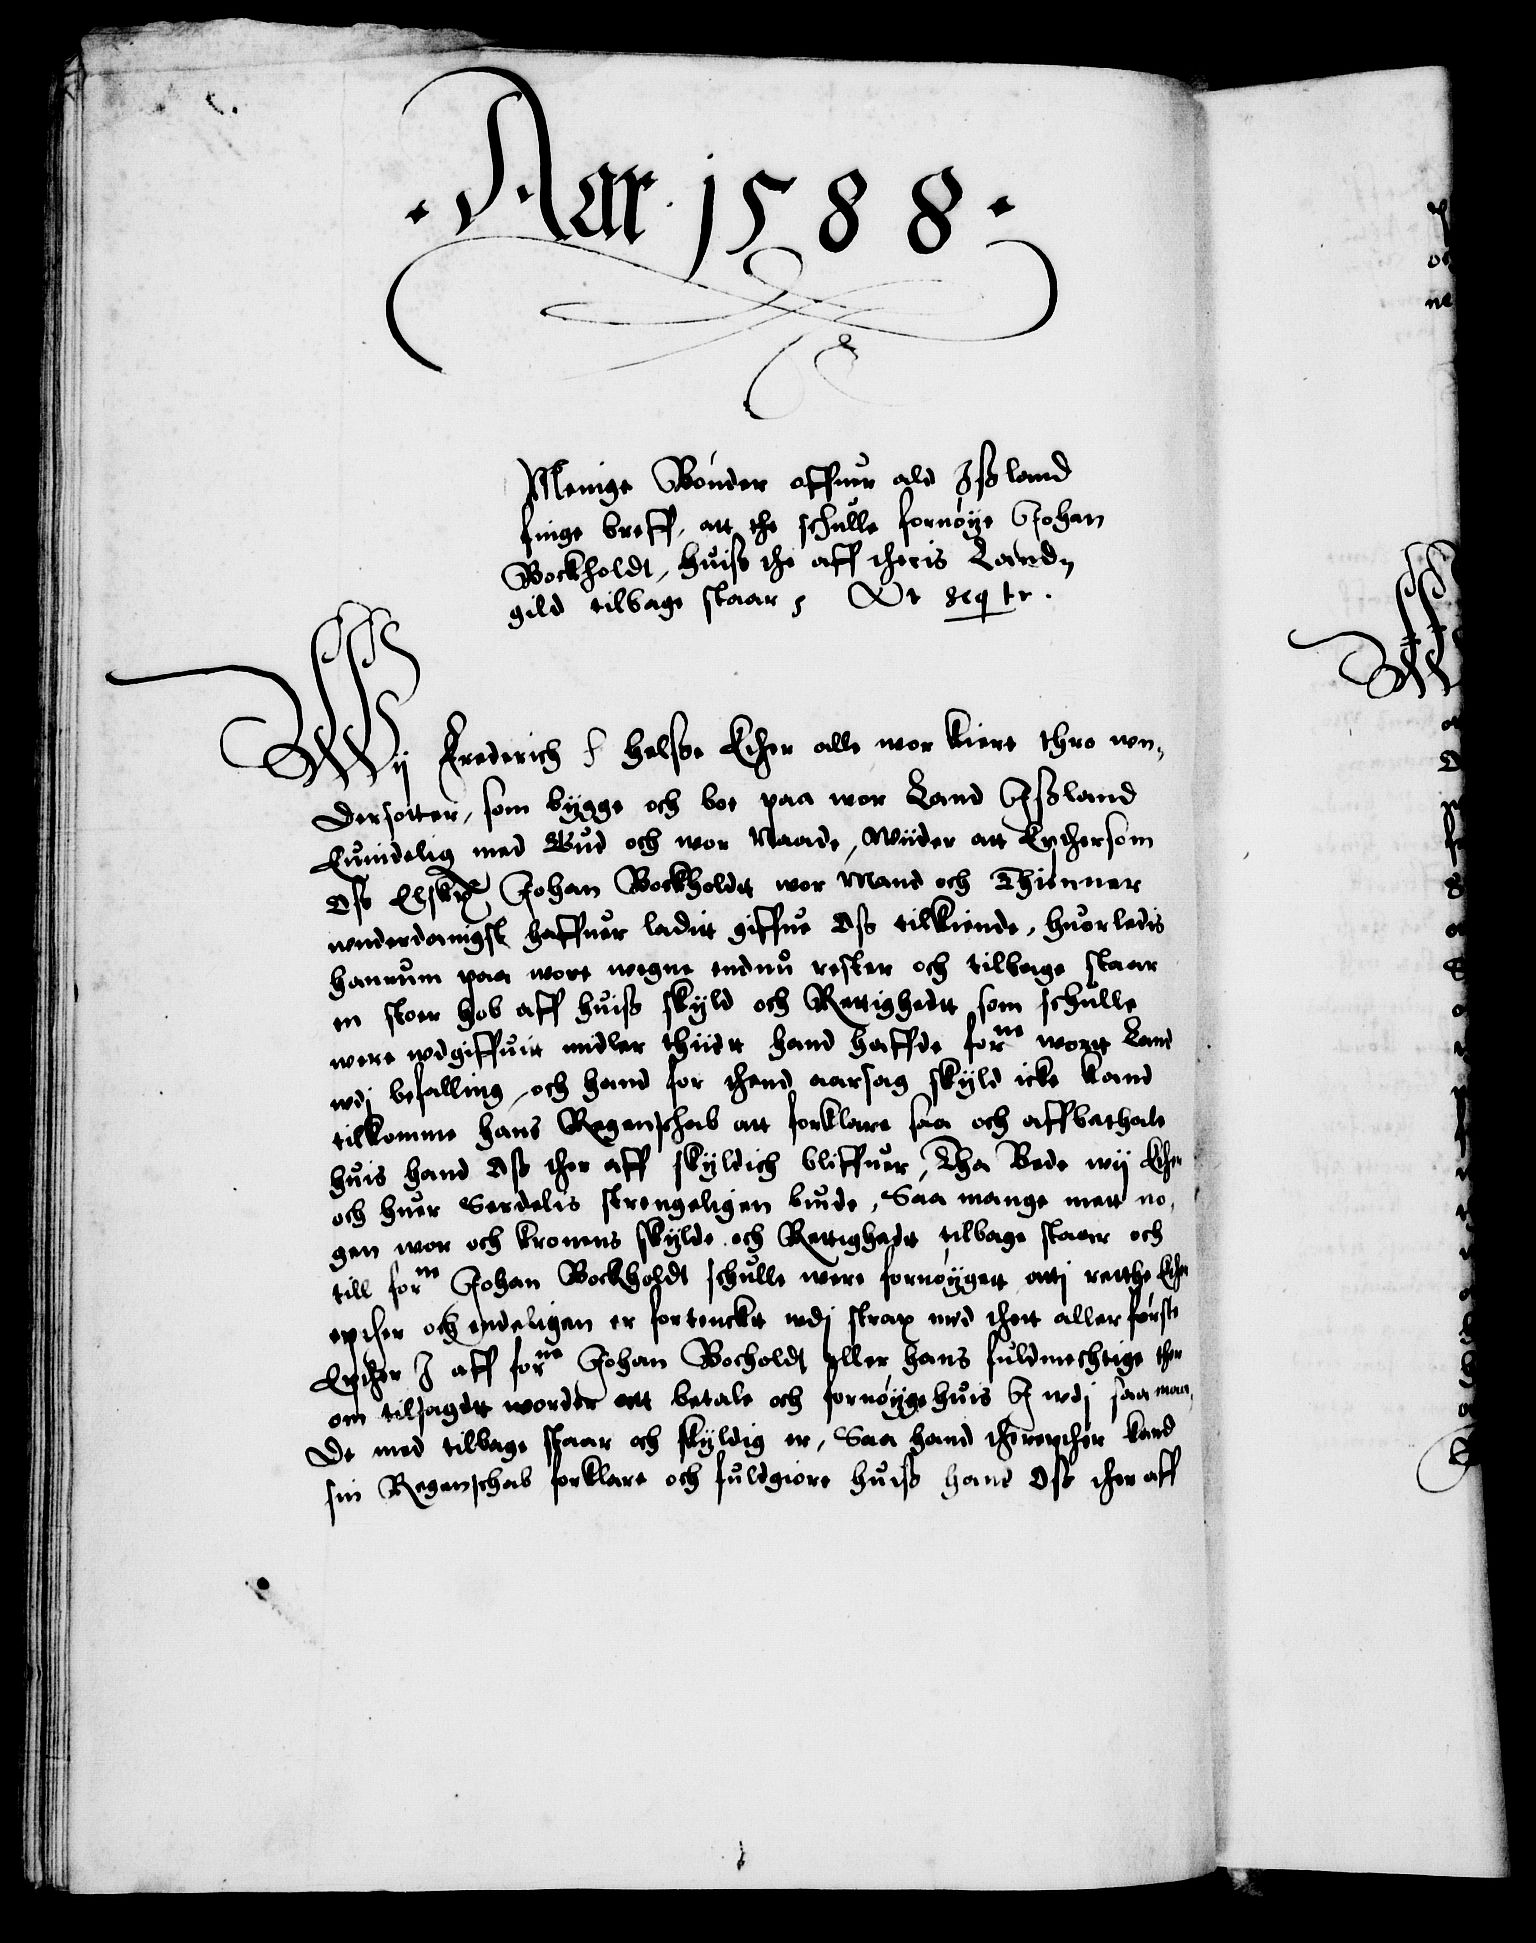 Aar 1588
Menige Bønder offuer ald Jsland
finge breff, att the schulle fornøye Johan
Bockholdt, huiss the aff theris Land,
gild tilbage staar, Vt seqtr.
Wij Frederich f helsse Ether alle wor kiere thro wn,
dersotter, som bygge och boe paa wor Land Jssland
Euindelig med Gud och wor Naade, Wiider att Epthersom
Oss Elskel Johan Bockholdt wor Mand och Thienner
wnderdanigst haffuer ladit giffue Oss tilkiende, huorledis
hannum paa wore wegne endnu rester och tilbage staar
en stoer hob aff huiss skyld och Rettighedt som schulle
were wdgiffuit midler thiidt hand haffde forne wortt Land
wdj befalling, och hand for thend aarsag skyld icke kand
tilkomme hans Regenschab att forklare saa och affbethale
huis hand Oss ther aff skyldich bliffuer, Tha Bede wij Ether
och huer Serdelis strengeligen biude, Saa mange mett no,
gen wor och kronens skylde och Rettighedt tilbage staar och
till forne Johan Bockholdt schulle were fornøygett attj rette Ether
epther och endeligen er fortenckt wdj strax med thett aller første
Epther J aff forne Johan Bocholdt eller hans fuldmechtige ther
om tilsagdt worder att betale och fornøyge huis J wdj saa maa,
De med tilbage staar och skyldig er, Saa hand therepther kand
sin Regenschab forklare och fuldgiøre huiss hand Oss ther aff